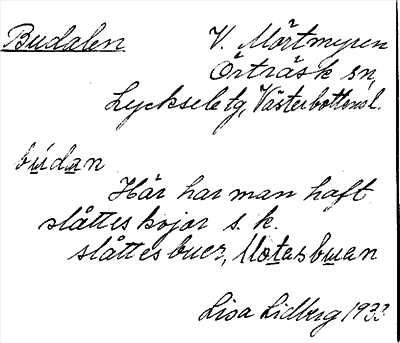 Budalen
V. Mörtmyren
Örträsk sn,
Lycksele tg, Västerbottensl.
búdan
Här har man haft
slåtteskojor s. k.
slåttesbuer,
Lisa Lidberg 1933